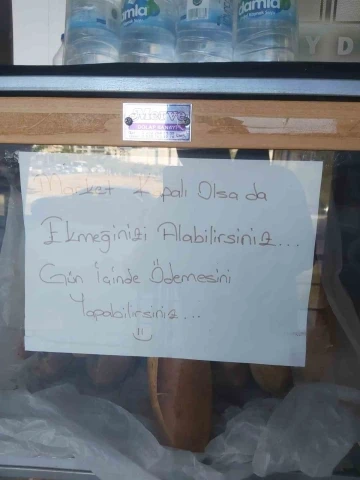 damla
damla
Market Kapalı Olsa da
Ekmeğinizi Alabilirsiniz...
Gün İçinde Ödemesini
Yapabilirsiniz...